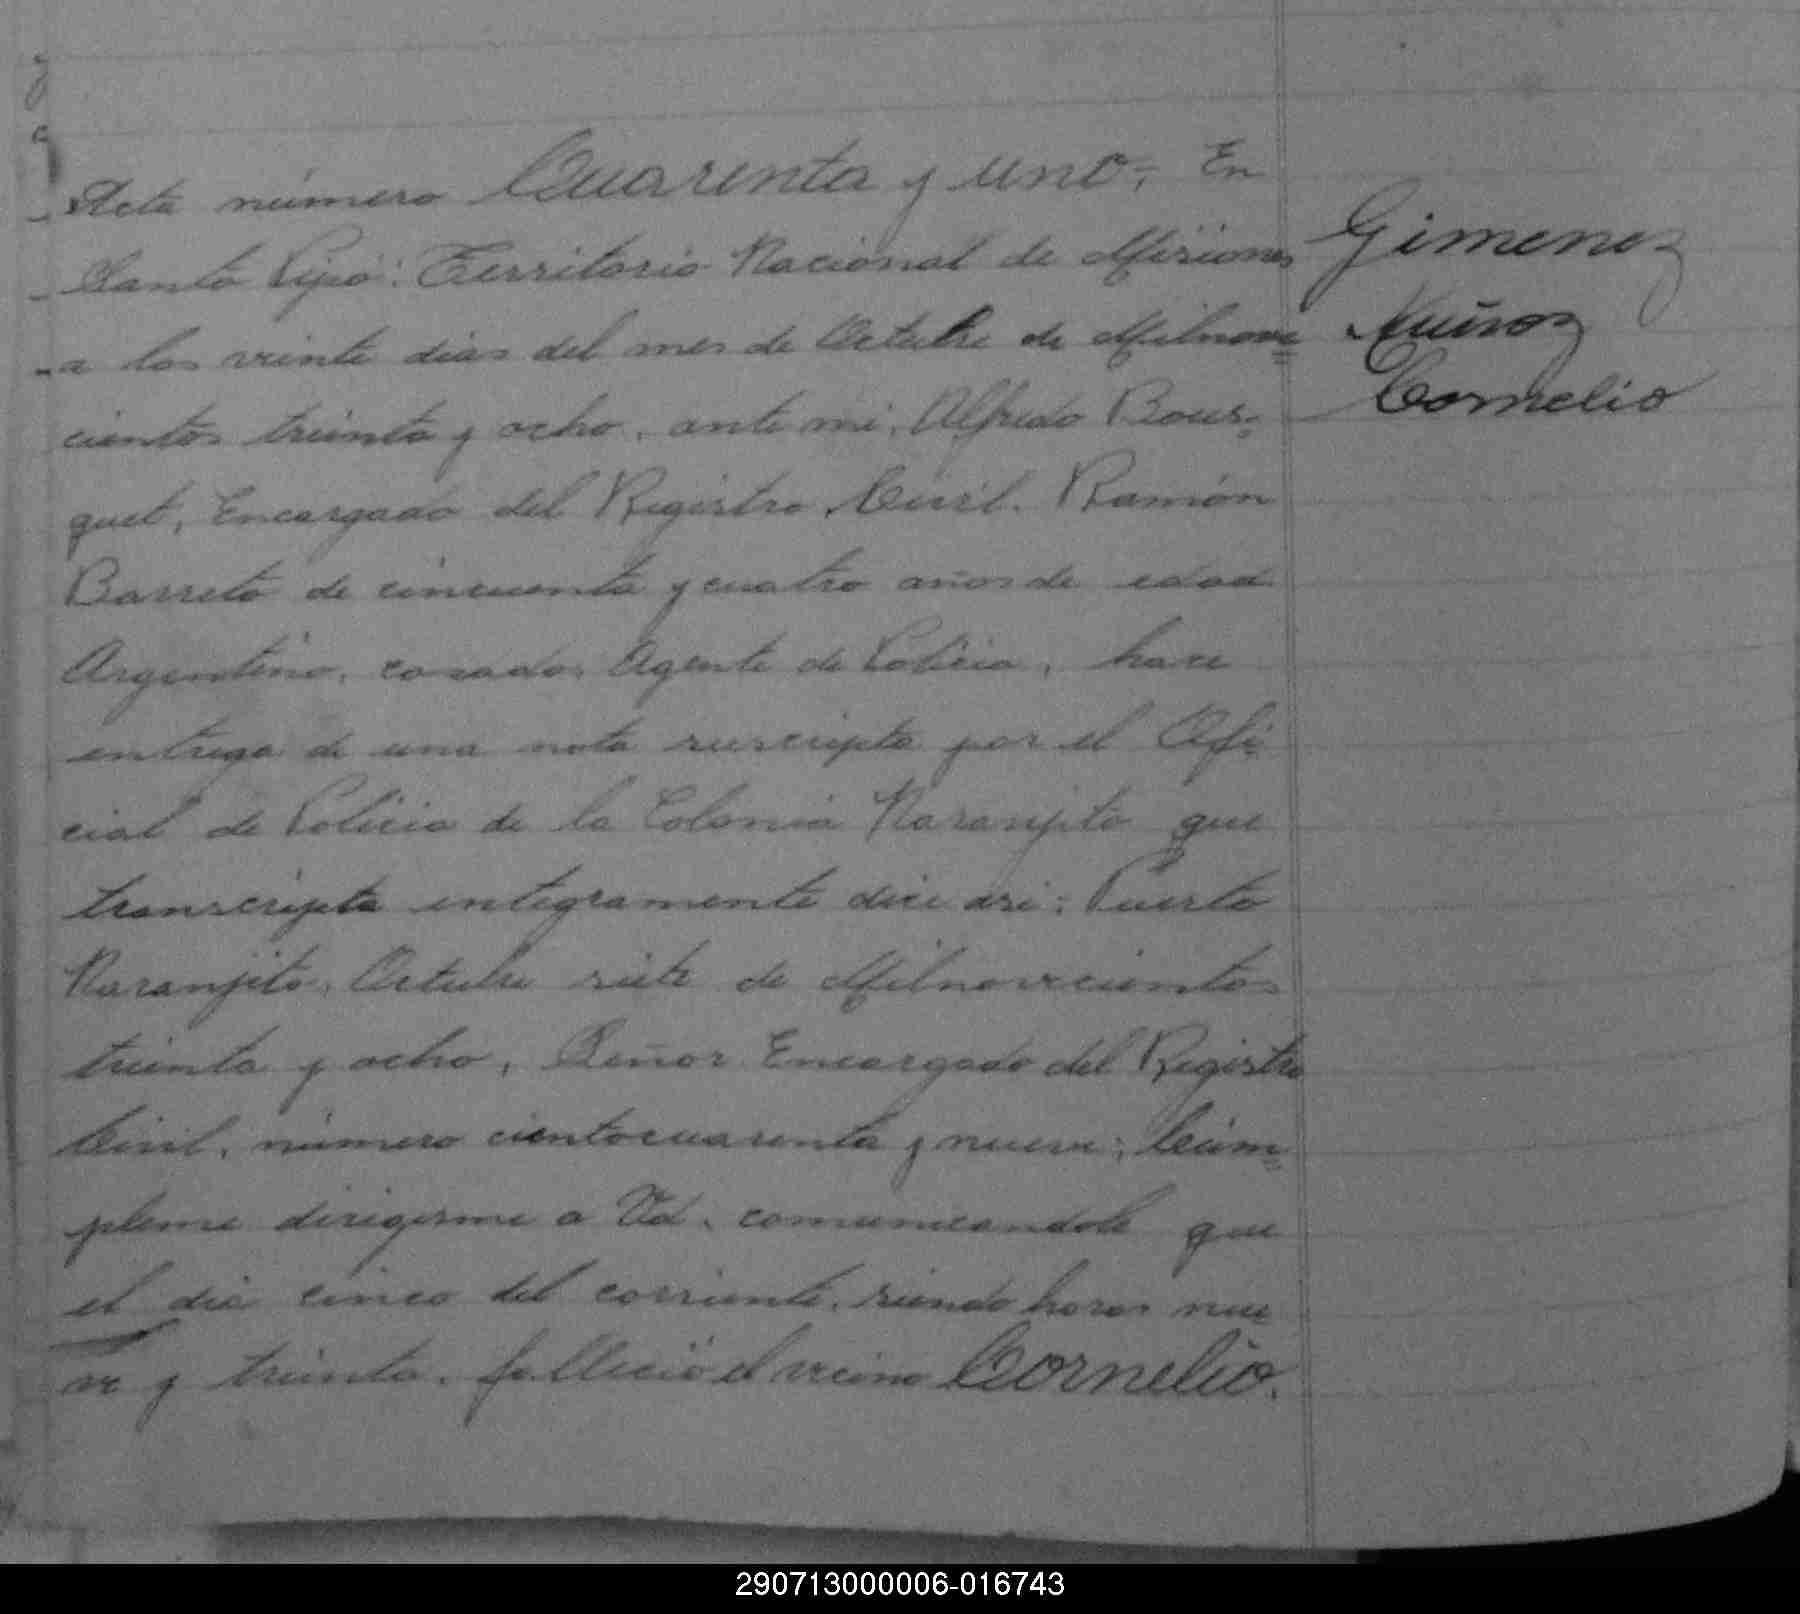 Acta número Cuarenta y uno, En
Santo Pipó: Territorio Nacional de Misiones
a los veinte dias del mes de Octubre de Milnove=
cientos treinta y ocho, ante mi, Alfredo Bous=
quet, Encargado del Registro Civil. Ramón
Barreto de cincuenta y cuatro años de edad
Argentino, casado, Agente de Policia, hace
entrega de una nota suscripta por el Ofi=
cial de Policia de la Colonia Naranjito que
transcripta integramente dice asi: Puerto
Naranjito, Octubre siete de Milnovecientos
treinta y ocho, Señor Encargado del Registro
Civil, número cientocuarenta y nueve; Cúm=
pleme dirigirme a Vd. comunicandole que
el dia cinco del corriente, siendo horas nue
ve y treinta, falleció el vecino Cornelio.
Gimenez
Muñoz
Cornelio
290713000006-016743